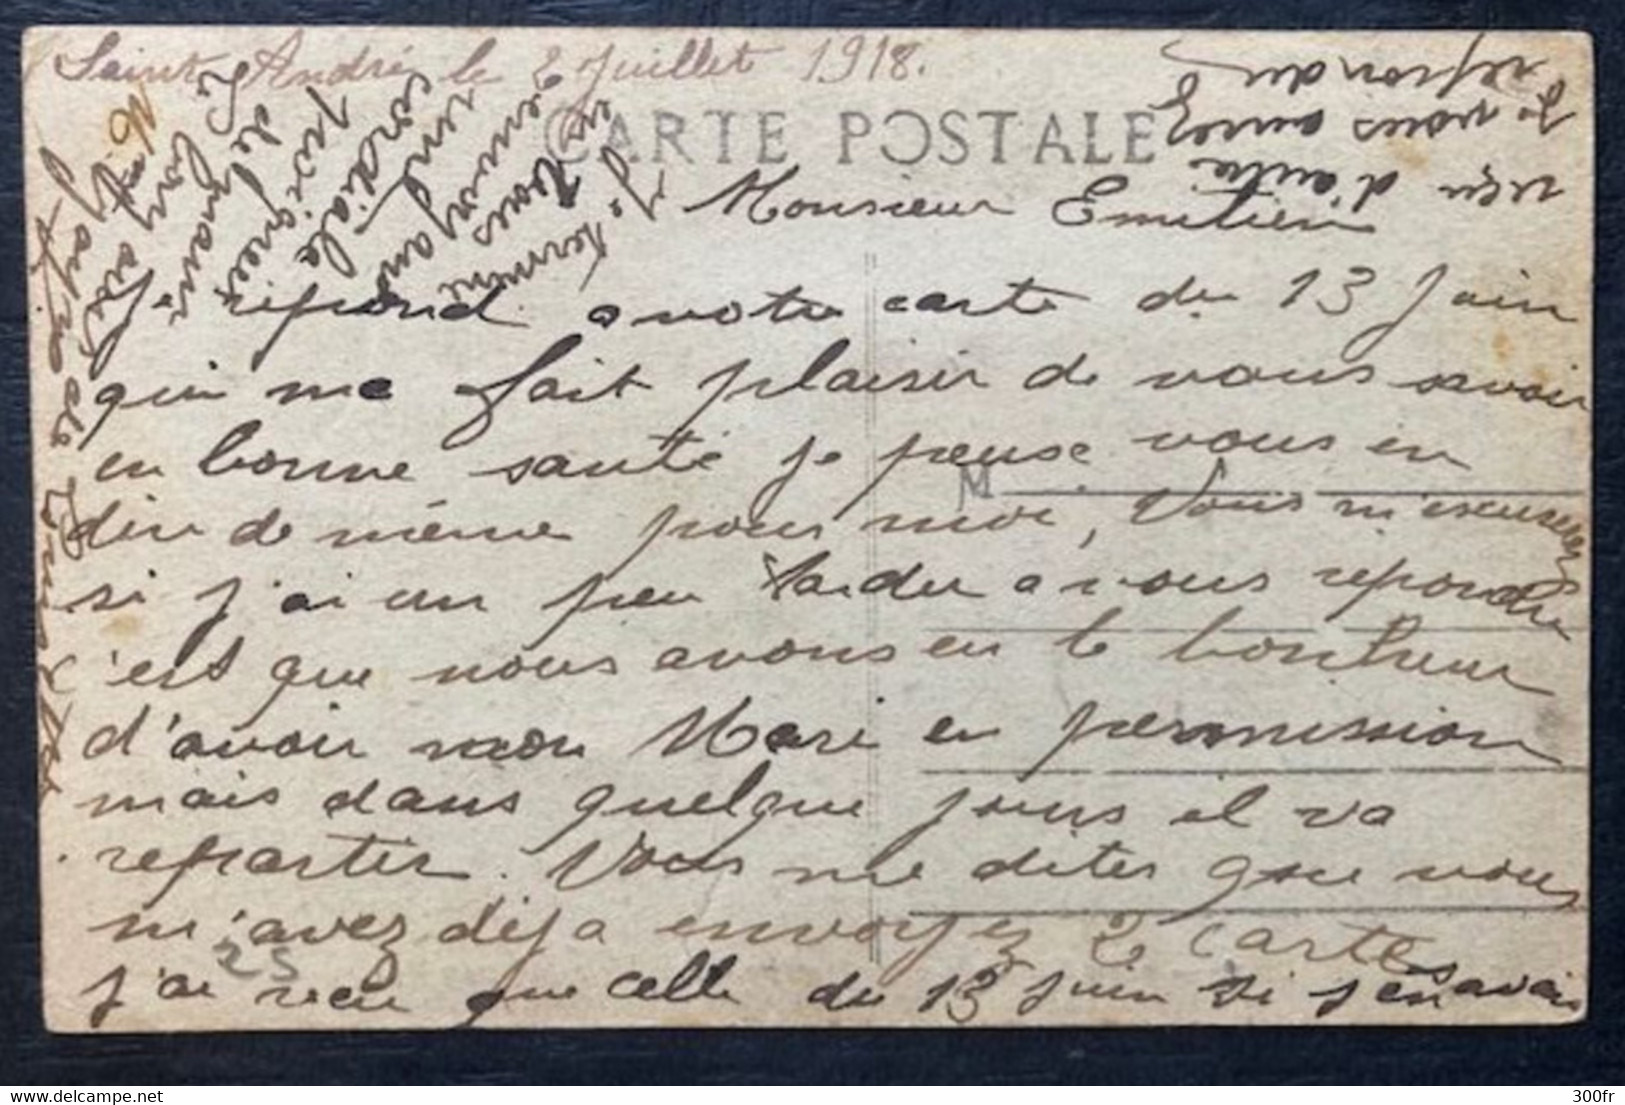 Saint André le 2 Juillet 1918.
CARTE POSTALE
Monsieur Emilien
répond a votre carte du 13 Juin
qui me fait plaisir de vous savoir
en bonne santé je pense vous en
dire de même pour moi, Vous m'excuserez
si j'ai un peu tarder a vous repondre
c'est que nous avons eu le bonheur
d'avoir mon Mari en permission
mais dans quelque jours il va
repartir. Vous me dites que vous
m'avez déja envoyez 2 carte
j'ai recu que celle du 13 Juin si j'en avais
reçu d'autre
je vous aurez
repondu
Je termine
en vous
envoyant
une
cordiale
poignee
de main
M
25
delcampe.net
300fr